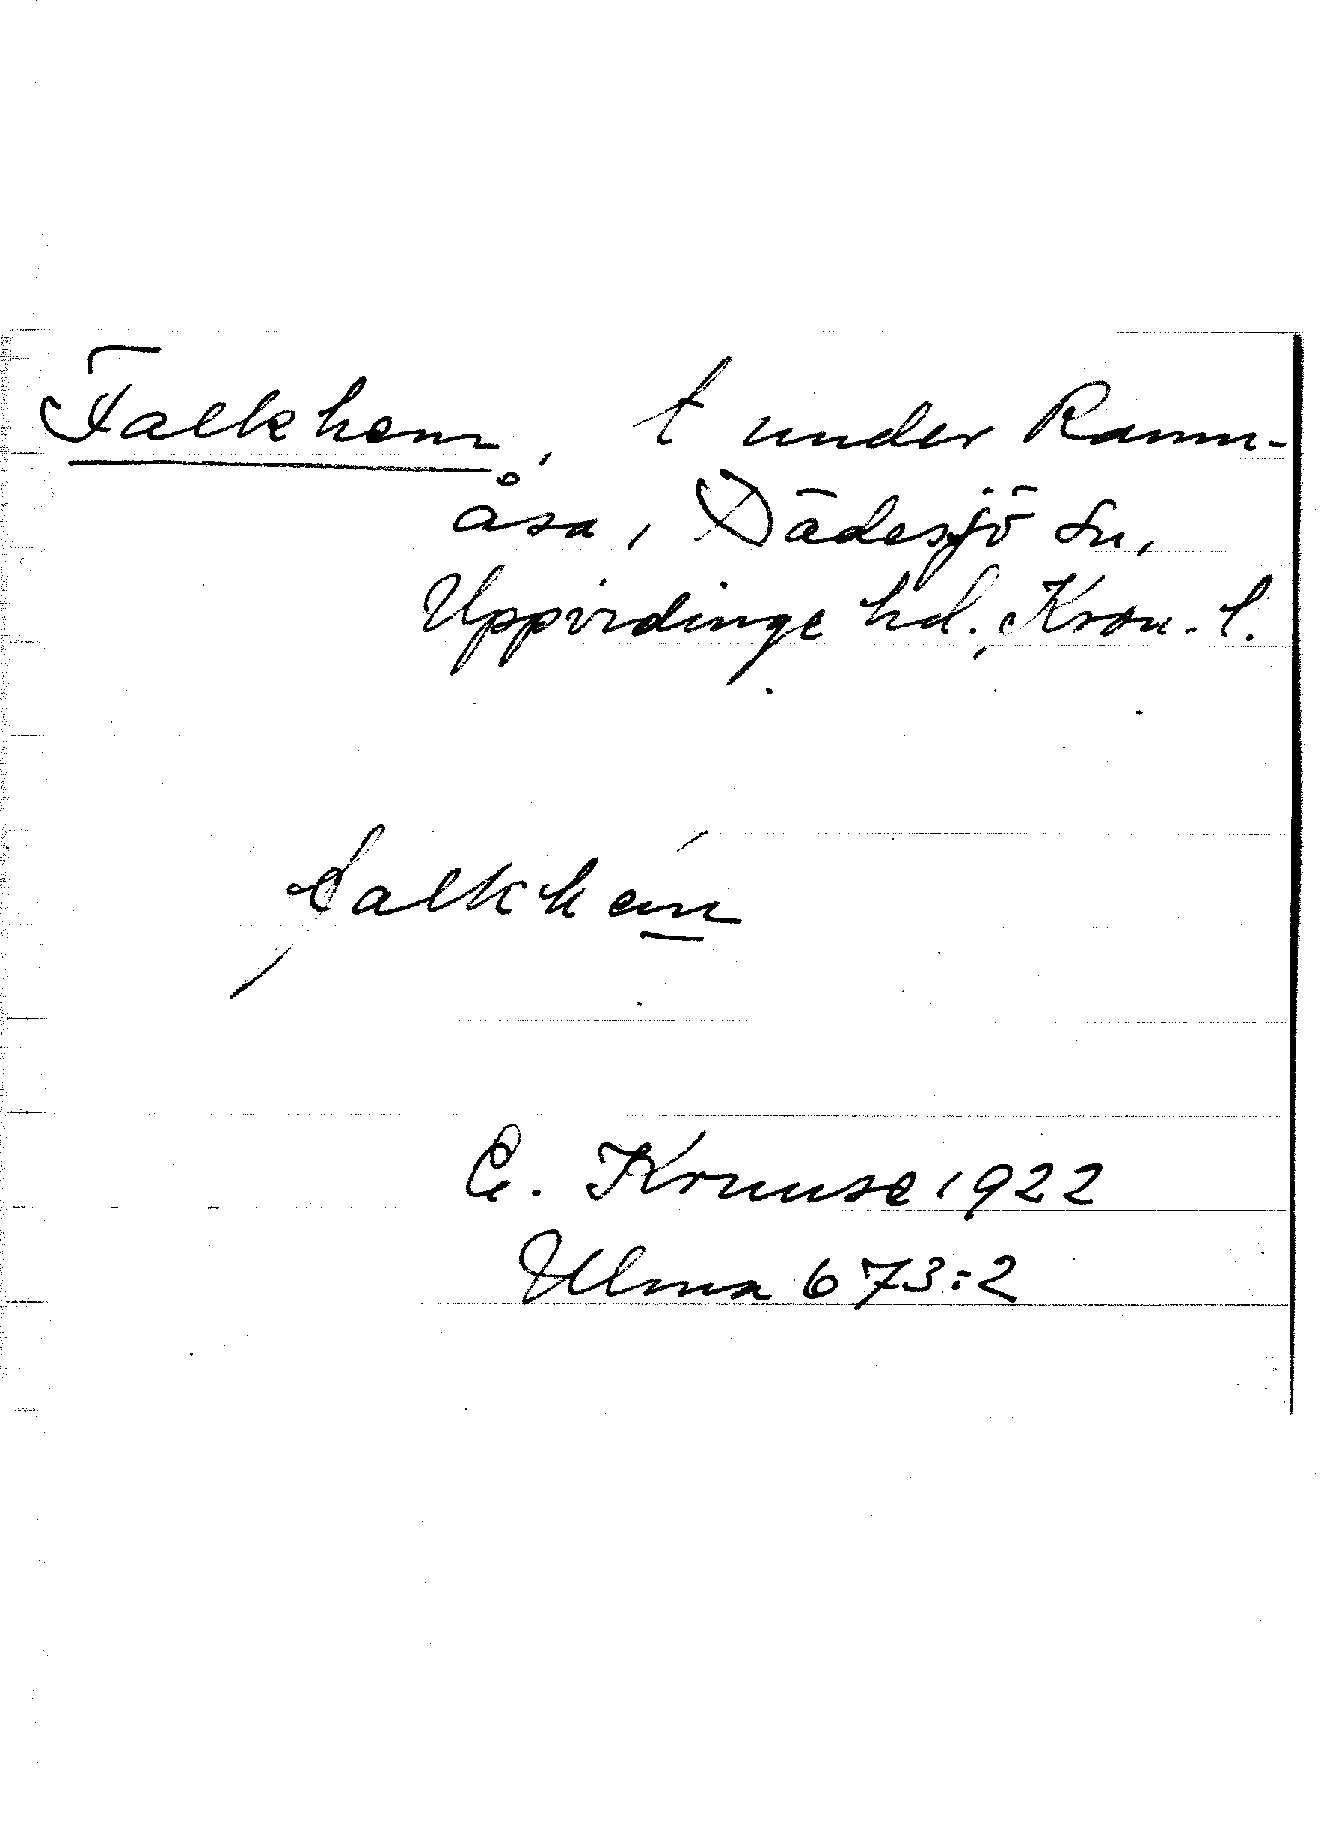 Falkhem, t under Ramn-
åsa, Dädesjö sn,
Uppvidinge hd., Kron. l.
falkhem
E. Kruuse 1922
Ulma 673:2